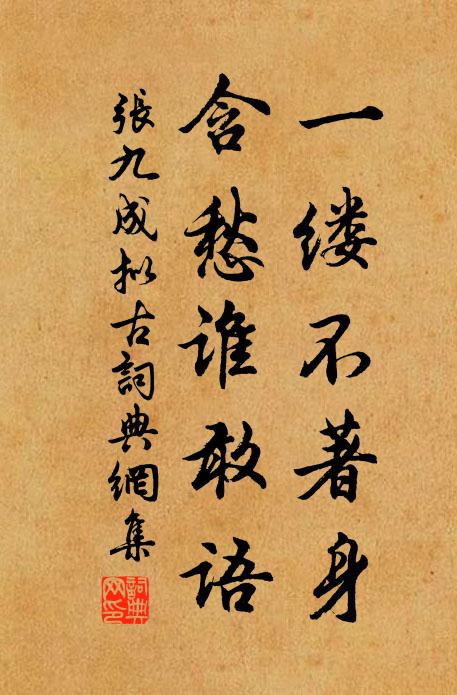 一缕不著身
含愁谁敢语
張九成拟古詞典網集
詞典網印